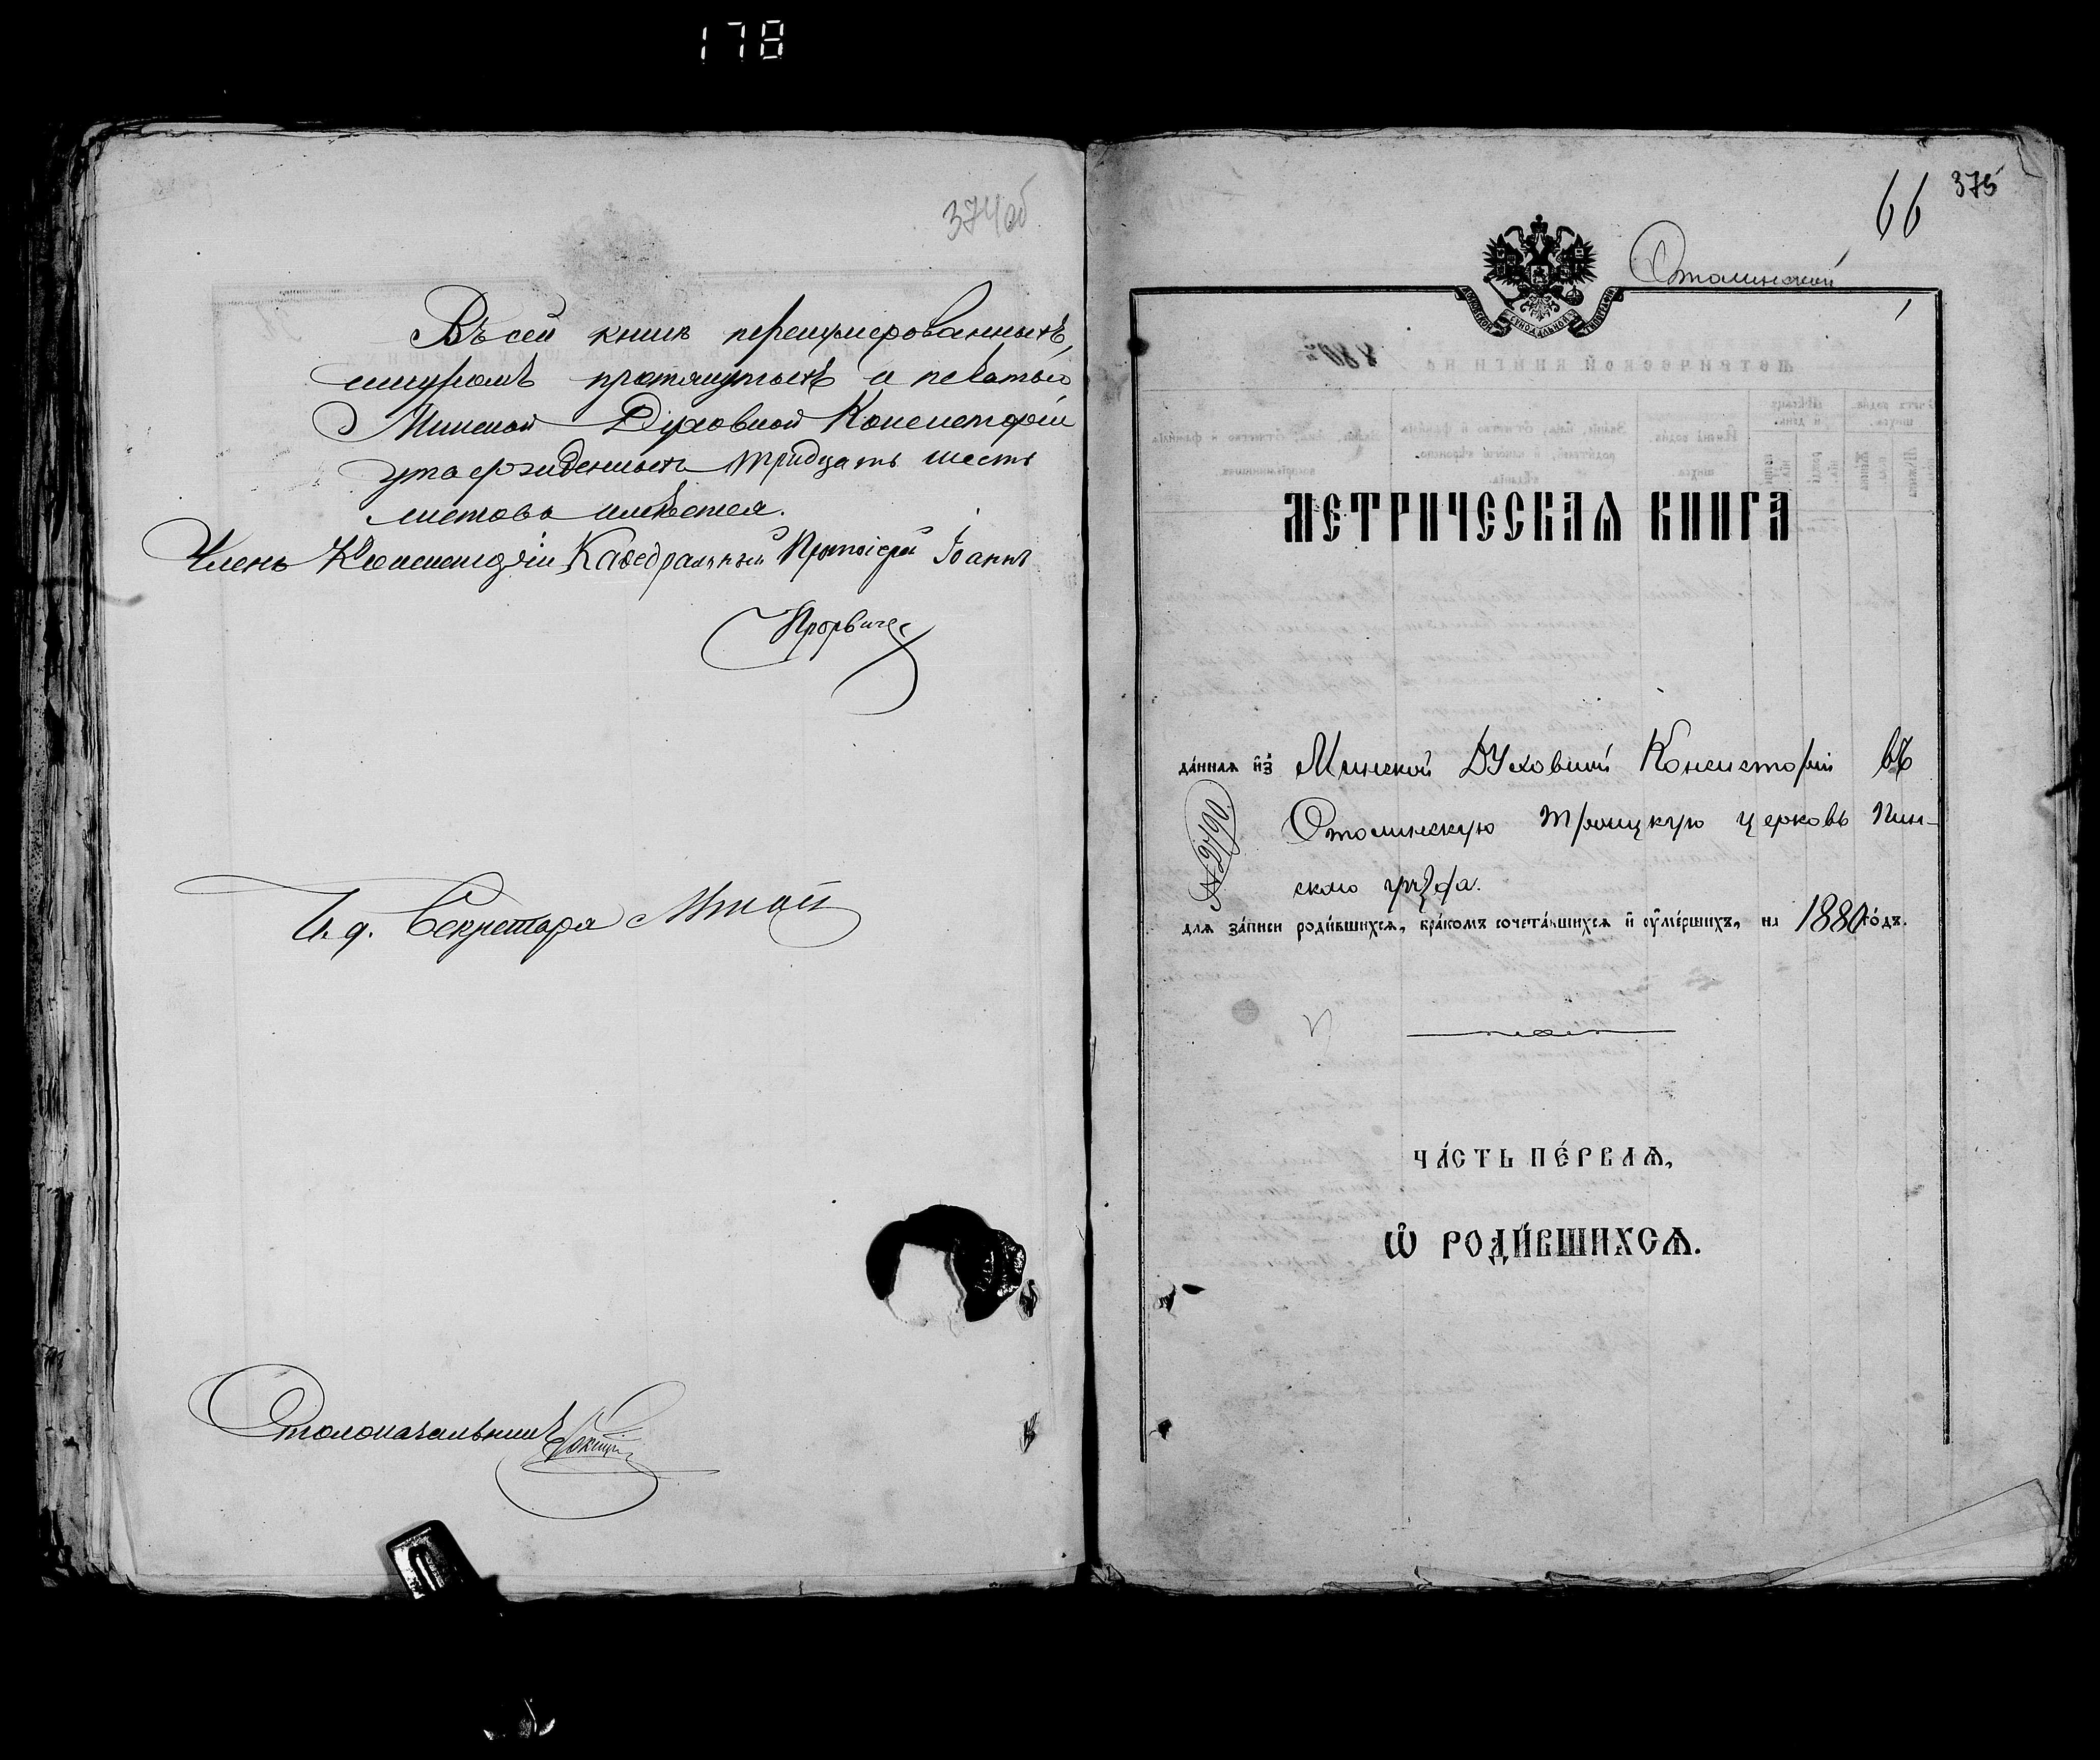 178
374об
Въ сей книгѣ перенумерованныхъ,
шнуромъ протянутыхъ и печатью
Минской Духовной Консисторіи
утвержденныхъ тридцать шесть
листовъ имѣется.
Членъ Консисторіи Каѳедральный Протоіерей Іоаннъ
И. д. Секретаря
Столоначальникъ
66 375
Столинской
1
МЕТРИЧЕСКАѦ КНИГА
да́ннаѧ и҆з̾ Минской Духовной Консисторіи въ
Столинскую Троицкую церковь Пин-
скаго уѣзда.
№ 2790
длѧ за́писи роди́вшихсѧ, бра́комъ сочета́вшихсѧ и҆ ᲂу҆ме́ршихъ, на 1880 го́дъ.
ЧА́СТЬ ПЕ́РВАѦ,
Ѽ РОДИ́ВШИХСѦ.